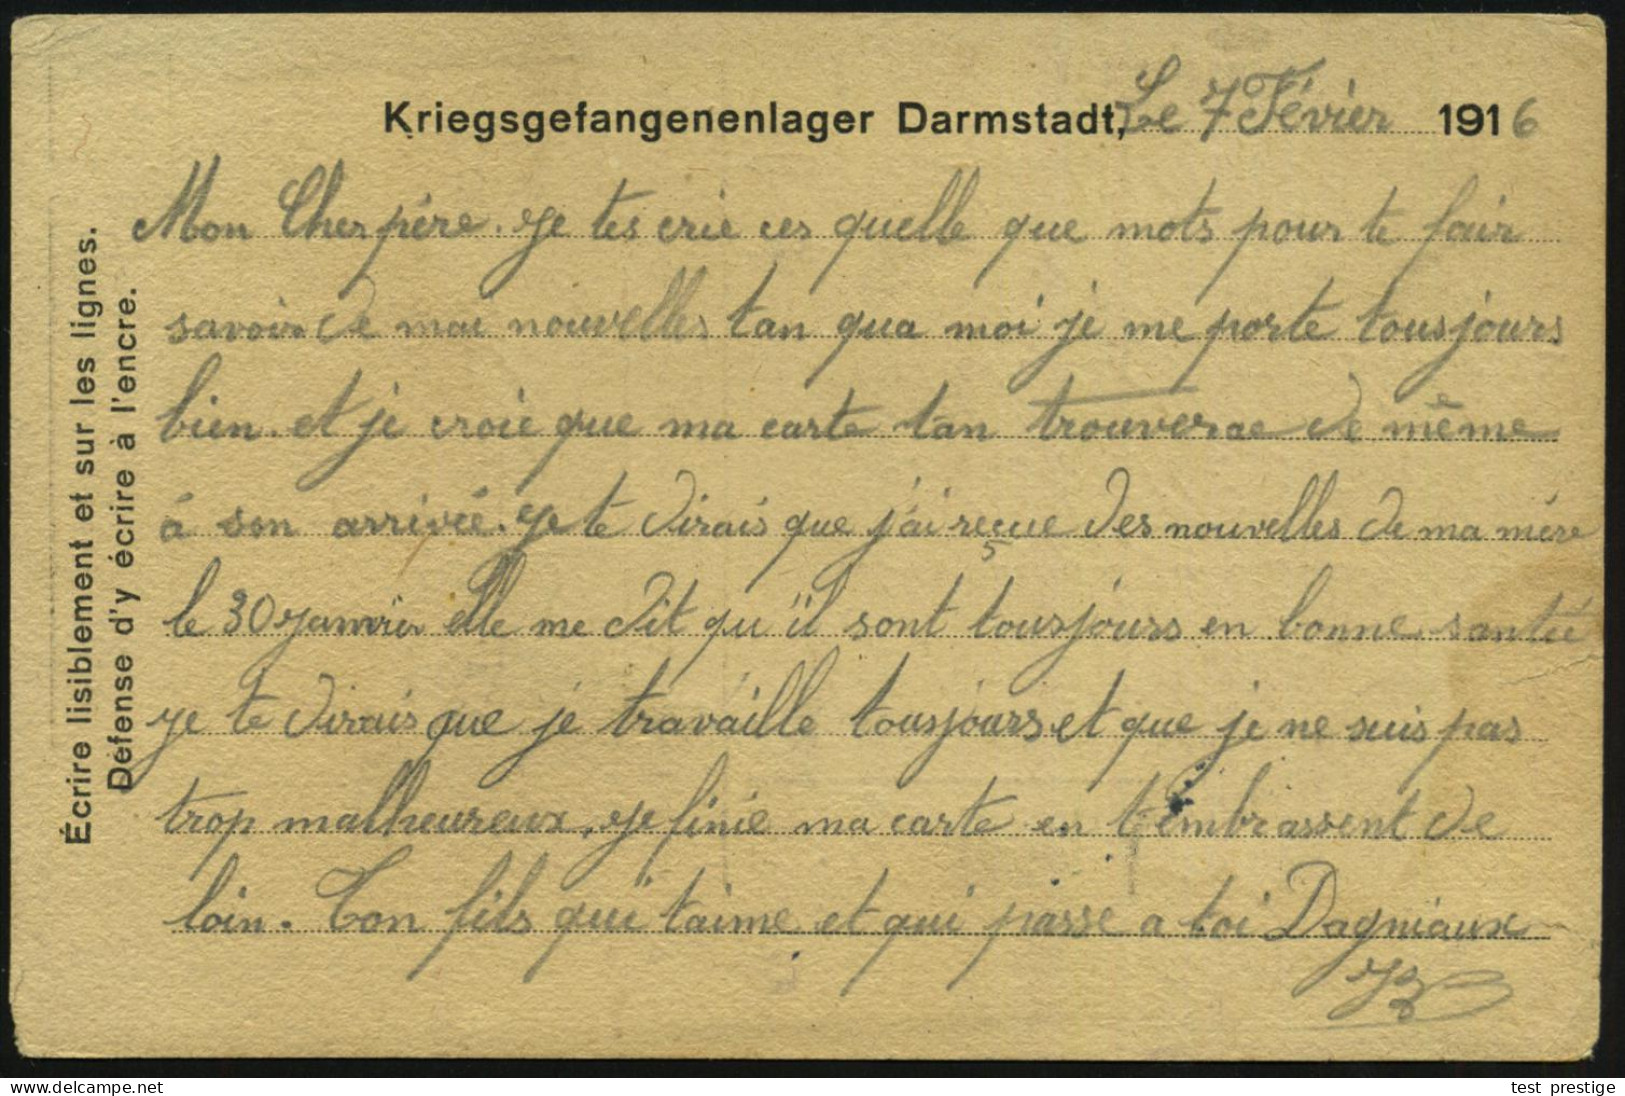 Kriegsgefangenenlager Darmstadt, Le 7 Févier 1916
Mon Cher père. je tes crie ces quelle que mots pour te fair
savoir de mai nouvelles tan qua moi je me porte tousjours
bien. et je croie que ma carte tan trouverae de même
á son arrivée. je te dirais que j'ai reçue des nouvelles de ma mére
le 30 janvier elle me dit qu'il sont tousjours en bonne santée
je te dirais que je travaille tousjours et que je ne suis pas
trop malheureux, je finie ma carte en t'embrassent de
loin. Ton fils qui t'aime et qui passe a toi Dagniaux
Écrire lisiblement et sur les lignes.
Défense d'y écrire à l'encre.
www.delcampe.net
test_prestige